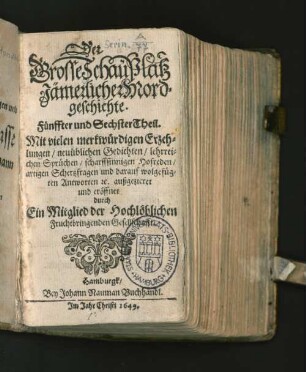 Der
Grosse Schauplatz
Jämerlicher Mord-
geschichte.
Fünffter und Sechster Theil.
Mit vielen merkwürdigen Erzeh-
lungen / neuüblichen Gedichten / lehrrei-
chen Sprüchen / scharffsinnigen Hofreden /
artigen Scherzfragen und darauf wolgefüg-
ten Antworten ꝛc. außgezieret
und eröffnet
durch
Ein Mitglied der Hochlöblichen
Fruchtbringenden Gesellschafft.
Hamburgk /
Bey Johann Nauman Buchhandl.
Im Jahr Christi 1649.